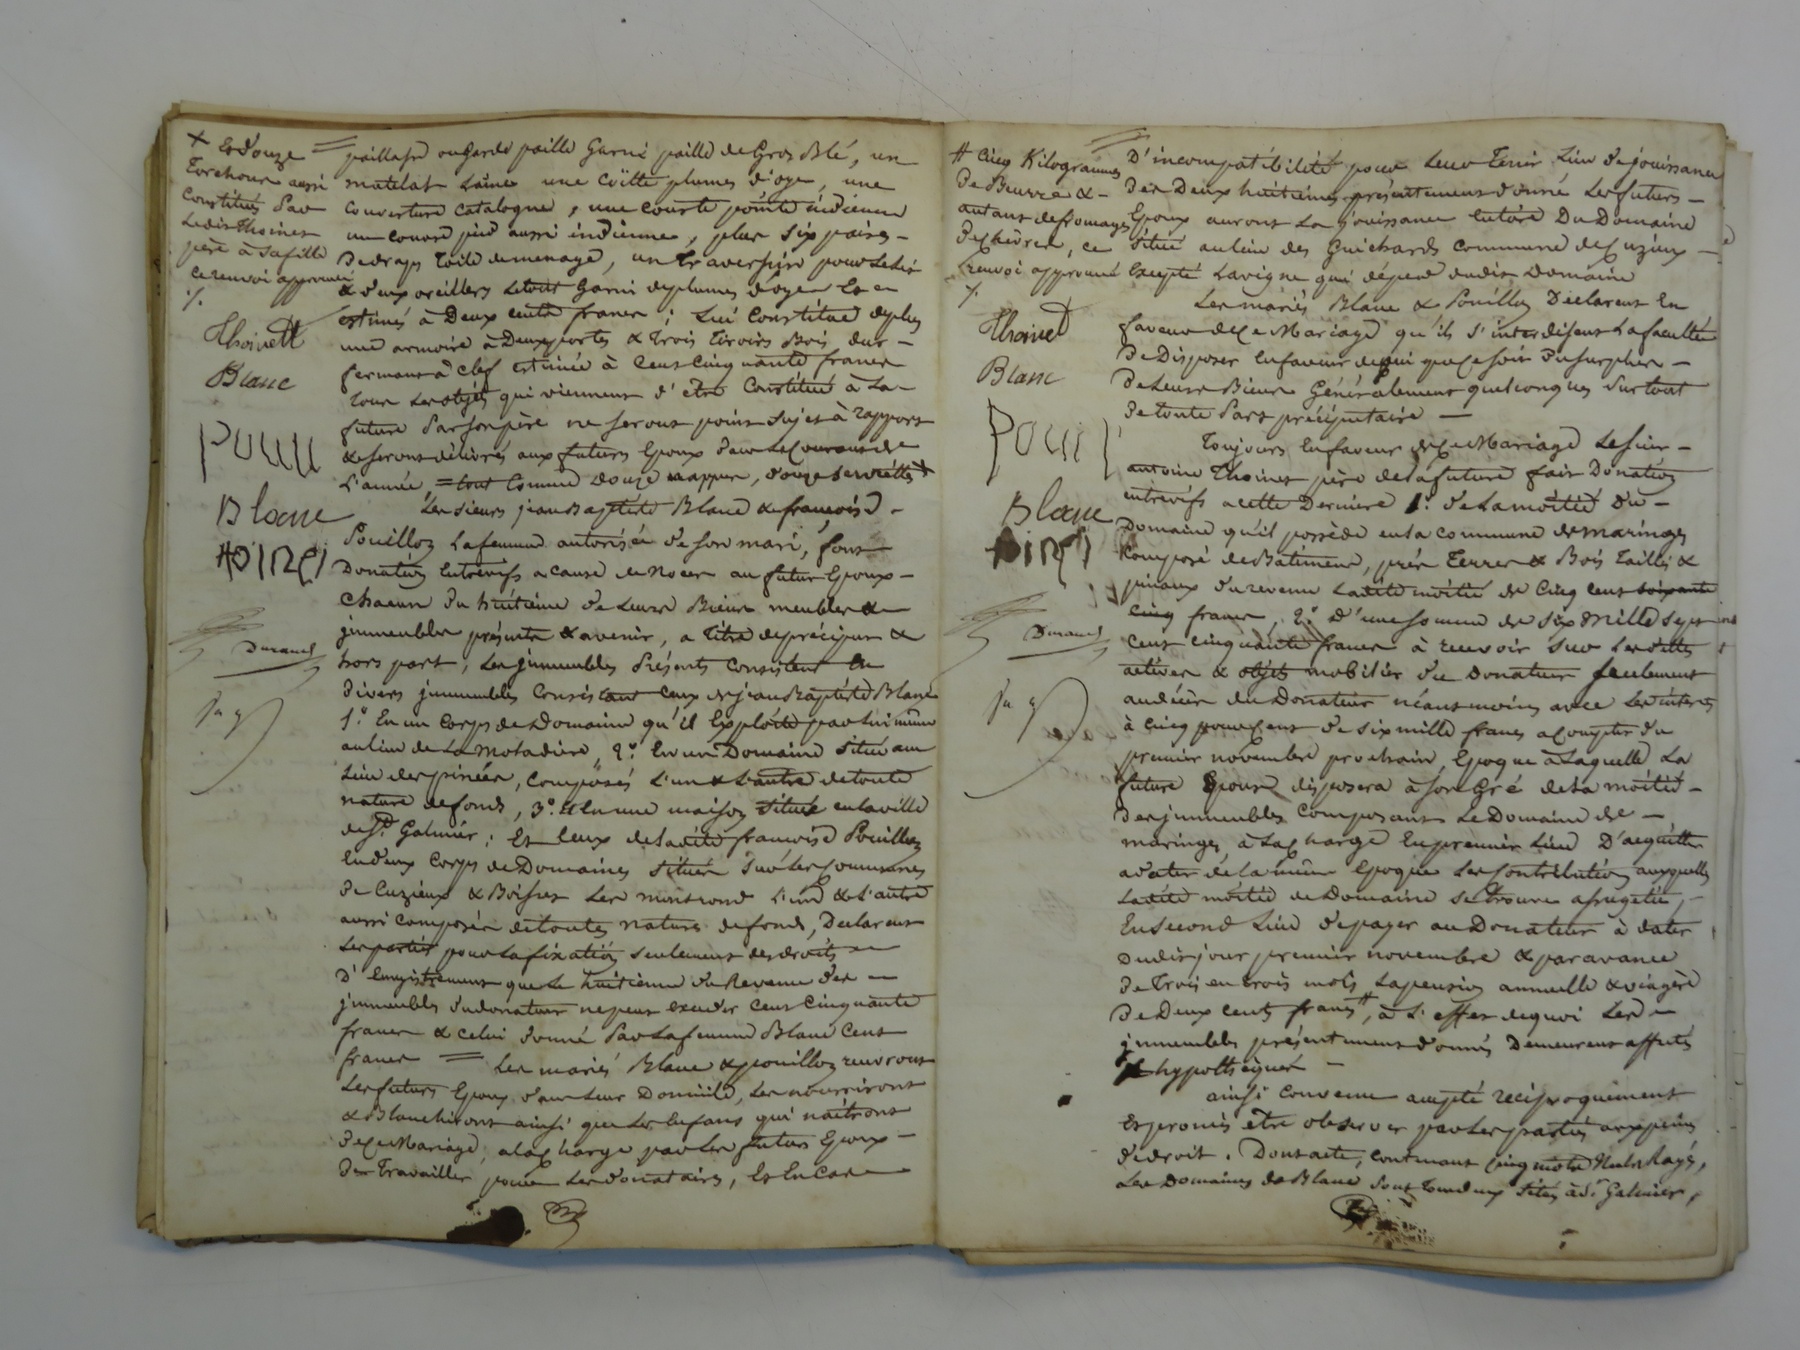 + Et Douze
Torchons aussi
Constitués Par
Ledit Thoinet
père à sa fille
ce renvoi approuvé
./.
Thoinet
Blanc
POUILL
Blanc
tOINET
Durand
paillasse ou garde paille Garni paille de Gros Blé, un
matelat Laine une Coïtte plumes d'oye, une
Couverture Catalogne, une Courte pointe indienne
un Couvre pied aussi indienne, plus Six paires
de draps Toile de menage, un traversin pour le lit
& deux oreillers Letout Garni de plumes d'oye Et
Estimés à Deux cents francs; Lui Constitue de plus
une armoire à Deux portes & Trois Tiroirs Bois dur
fermant à clef estimée à Cent Cinquante francs
Tous Les objets qui viennent d'être Constitué à La
future Par son père ne seront point sujet à rapport
& seront délivrés aux futurs Epoux dans Le Courant de
L'année, = tout Comme Douze nappes, douze serviettes +
Les sieurs jean Baptiste Blanc & francoise
Pouilloz La femme autorisée de son mari, font
Donation Entrevifs a cause de Noces au futur Epoux
Chacun du huitième de Leurs Biens meubles &
jmmeubles présents & avenir, a Titre de préciput &
hors part, Les jmmeubles Présents Consistent En
Divers jmmeubles Consistant ceux de jean Baptiste Blanc
1.º En un Corps de Domaine qu'il Exploite par Lui même
au lieu de La motadière, 2.º En un Domaine situé au
Lieu des pinées, Composés L'un & L'autre de toute
nature de fonds, 3.º & En une maison située en La ville
de St. Galmier; Et Ceux de Ladite francoise Pouilloz
En deux Corps de Domaines situés sur Les Communes
de Cuzieux & Boisset Les montrond L'un & L'autre
aussi Composés de toutes natures de fonds, Declarent
Les parties pour La fixation seulement des droits
D'Enregistrement que Le huitième du Revenu des
jmmeubles du donateur ne peut exceder Cent Cinquante
francs & Celui donné Par La femme Blanc Cent
francs = Les mariés Blanc & pouilloz recevront
Les futurs Epoux dans Leur Domicile, Les nourriront
& Blanchiront ainsi que Les Enfans qui naîtront
de Ce Mariage, a La Charge par Les futurs Epoux
de Travailler pour Les donataires, Et En Cas
# Cinq Kilogrammes
de Beurre &
autant de fromages
de Chèvres, ce
renvoi approuvé
./.
Thoinet
Blanc
POUILL
Blanc
OINET
Durand
D'incompatibilité pour Leur Tenir Lieu de jouissance
des Deux huitièmes présentement donné Les futurs
Epoux auront La jouissance Entière Du Domaine
situé au lieu des Guichards Commune de Cuzieux
Excepté La vigne qui dépend dudit Domaine
Les mariés Blanc & Pouilloz Déclarent En
faveur de Ce Mariage qu'ils s'interdisent La faculté
de Disposer En faveur de qui que Ce soit du surplus
de Leurs Biens Généralement quelconques sur tout
de toute Part préciputaire
Toujours En faveur de Ce Mariage Le sieur
antoine Thoinet père de La future fait Donation
entrevifs a cette Dernière 1.º de La moitié Du
Domaine qu'il possède en La Commune de maringes
Composé de Batimens, prés Terres & Bois Taillis &
pinaux du revenu Ladite moitié de Cinq Cent soixante
cinq francs, 2.º D'une somme de six mille sept
cent cinquante francs à recevoir sur Les dettes
actives & objets mobilier du Donateur seulement
au décès du Donateur néantmoins avec Les interets
à Cinq pour Cent de six mille francs a Compter du
premier novembre prochain, Epoque à Laquelle La
future Epouse disposera à son Gré de La moitié
des jmmeubles Composant Le Domaine de
maringes, à La Charge En premier Lieu D'acquitter
a dater de La même Epoque Les Contributions auxquelles
Ladite moitié de Domaine se trouve assugetie,
En second Lieu de payer au Donateur à dater
dudit jour premier novembre & par avance
de Trois en trois mois La pension annuelle & viagère
de Deux cents francs #, à L'effet de quoi Les
jmmeubles présentement donnés Demeurent affectés
& hypothéqués
ainsi Convenu accepté réciproquement
Et promis être observer par Les parties aux peines
de droit. Dont acte, Contenant Cinq mots Nuls Rayés,
Les Domaines de Blanc sont Tous deux situés à St. Galmier,